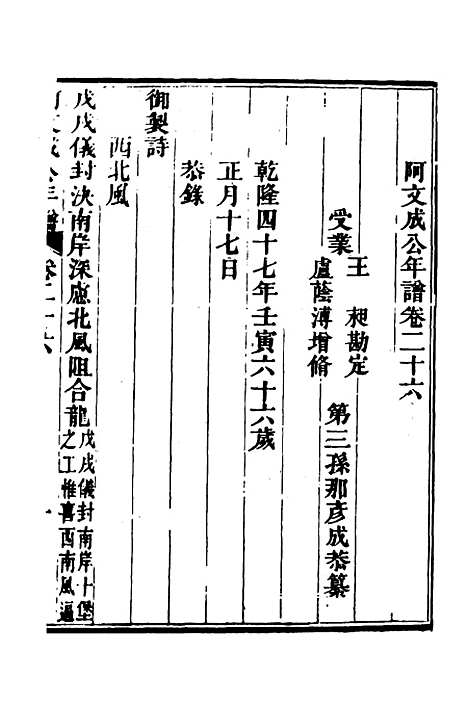 阿文成公年譜卷二十六
第三孫那彥成恭纂
受業
王 昶勘定
盧蔭溥增脩
乾隆四十七年壬寅六十六歲
正月十七日
恭錄
御製詩
西北風
戊戌儀封決南岸深慮北風阻合龍戊戌儀封南岸十堡
之工惟喜西南風逼
阿文成公年譜 卷二十六 一